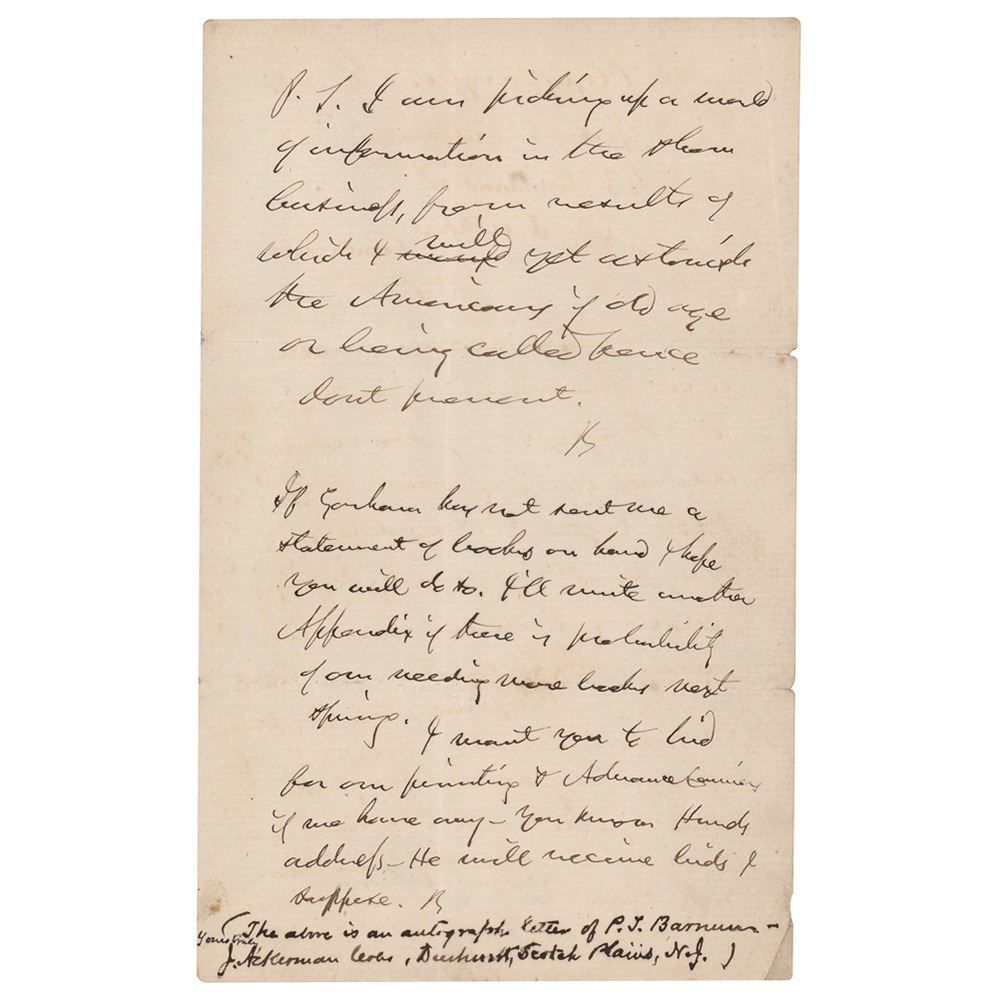 P. S. I am picking up a world
of information in the show
business, from results of
which I would will yet astonish
the Americans if old age
or being called hence
dont prevent.
B
If Gorham has not sent me a
statement of books on hand I hope
you will do so. I'll write another
Appendix if there is probability
of our needing more books next
spring.
I want you to bid
for our printing & Advance Couriers
if we have any - You know Hurds
address - He will receive bids I
suppose. B
(The above is an autograph letter of P. T. Barnum -
Yours truly
J. Ackerman Coles, Scotch Plains, N.J. )